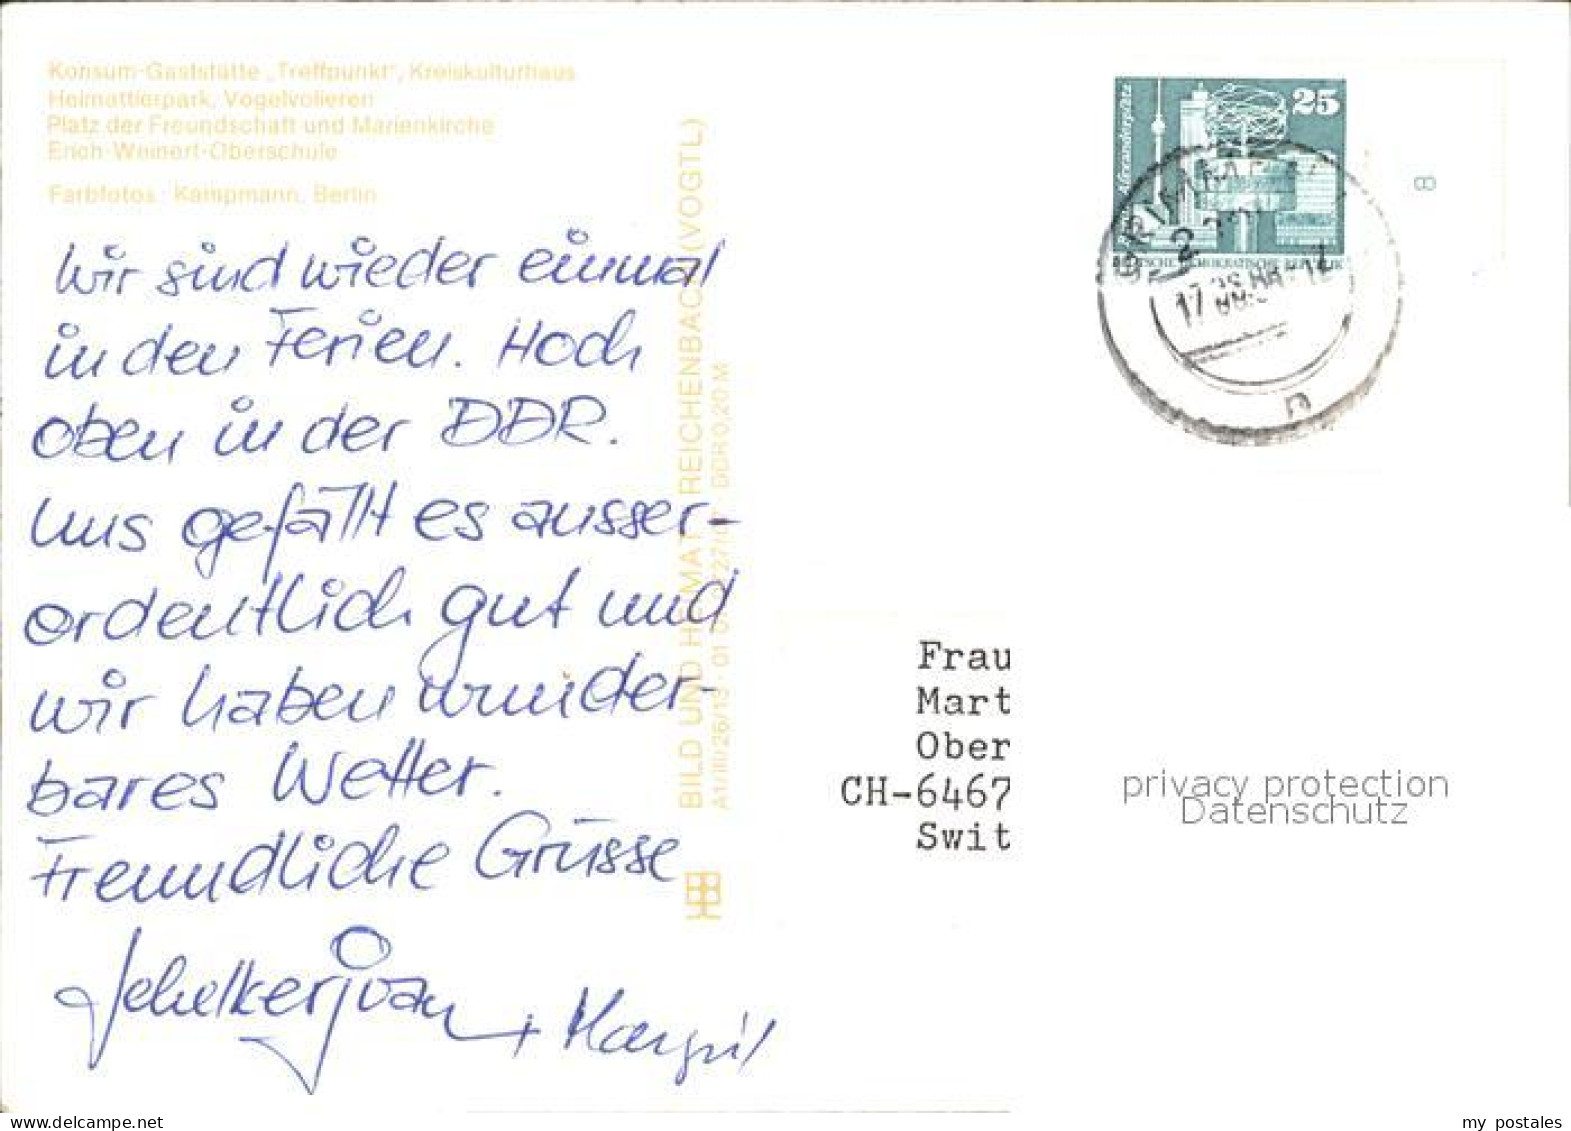 Konsum-Gaststätte „Treffpunkt", Kreiskulturhaus
Heimattierpark, Vogelvolieren
Platz der Freundschaft und Marienkirche
Erich-Weinert-Oberschule
Farbfotos: Kampmann, Berlin
Wir sind wieder einmal
in den Ferien. Hoch
oben in der DDR.
Uns gefällt es ausser-
ordentlich gut und
wir haben wunder-
bares Wetter.
Freundliche Grüsse
+ Margrit
BILD UND HEIMAT REICHENBACH (VOGTL)
A1/III/26/13 01 DDR 0,20 M
25
Alexanderplatz
DEUTSCHE DEMOKRATISCHE REPUBLIK
8
GRIMMEN
17
n
Frau
Mart
Ober
CH-6467
Swit
privacy protection
Datenschutz
www.delcampe.net
my_postales